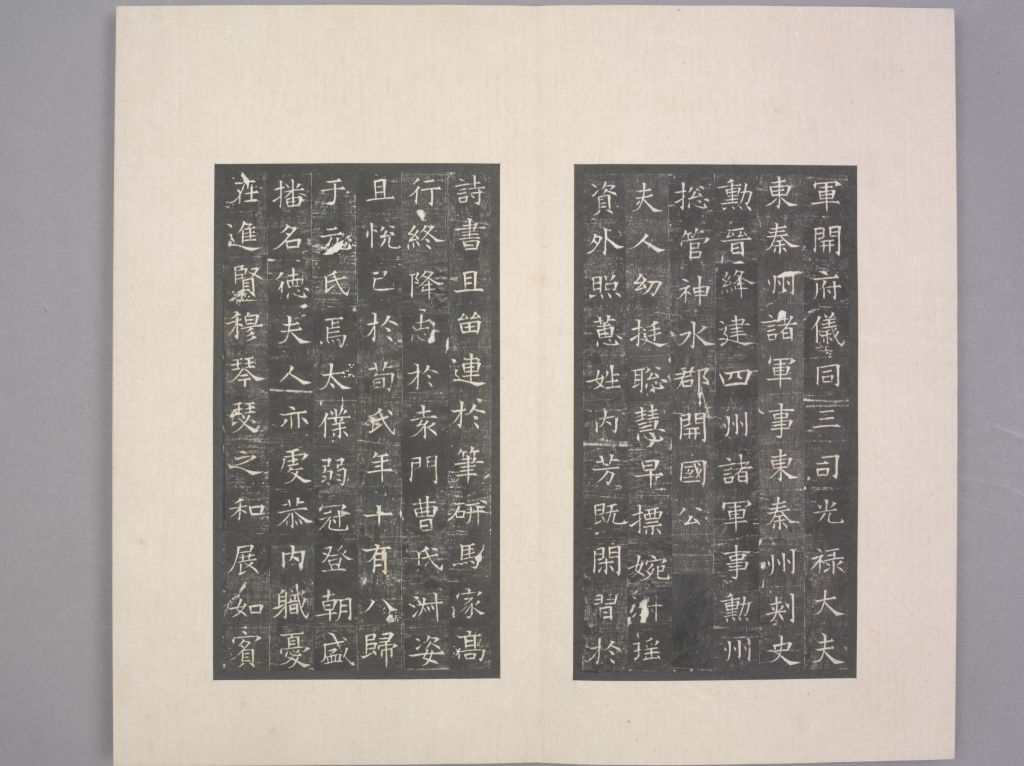 軍開府儀同三司光祿大夫
東秦州諸軍事東秦州刺史
勲晉絳建四州諸軍事勲州
揔管神水郡開國公
夫人幼挺聡慧早摽婉瑶
資外照蕙姓內芳既閑習於
詩書且留連於筆硏馬家高
行終降志於袁門曹氏淋姿
且悅己於荀氏年十有八歸
于元氏焉太僕弱冠登朝盛
播名德夫人亦虔恭內職憂
在進賢穆琴瑟之和展如賓